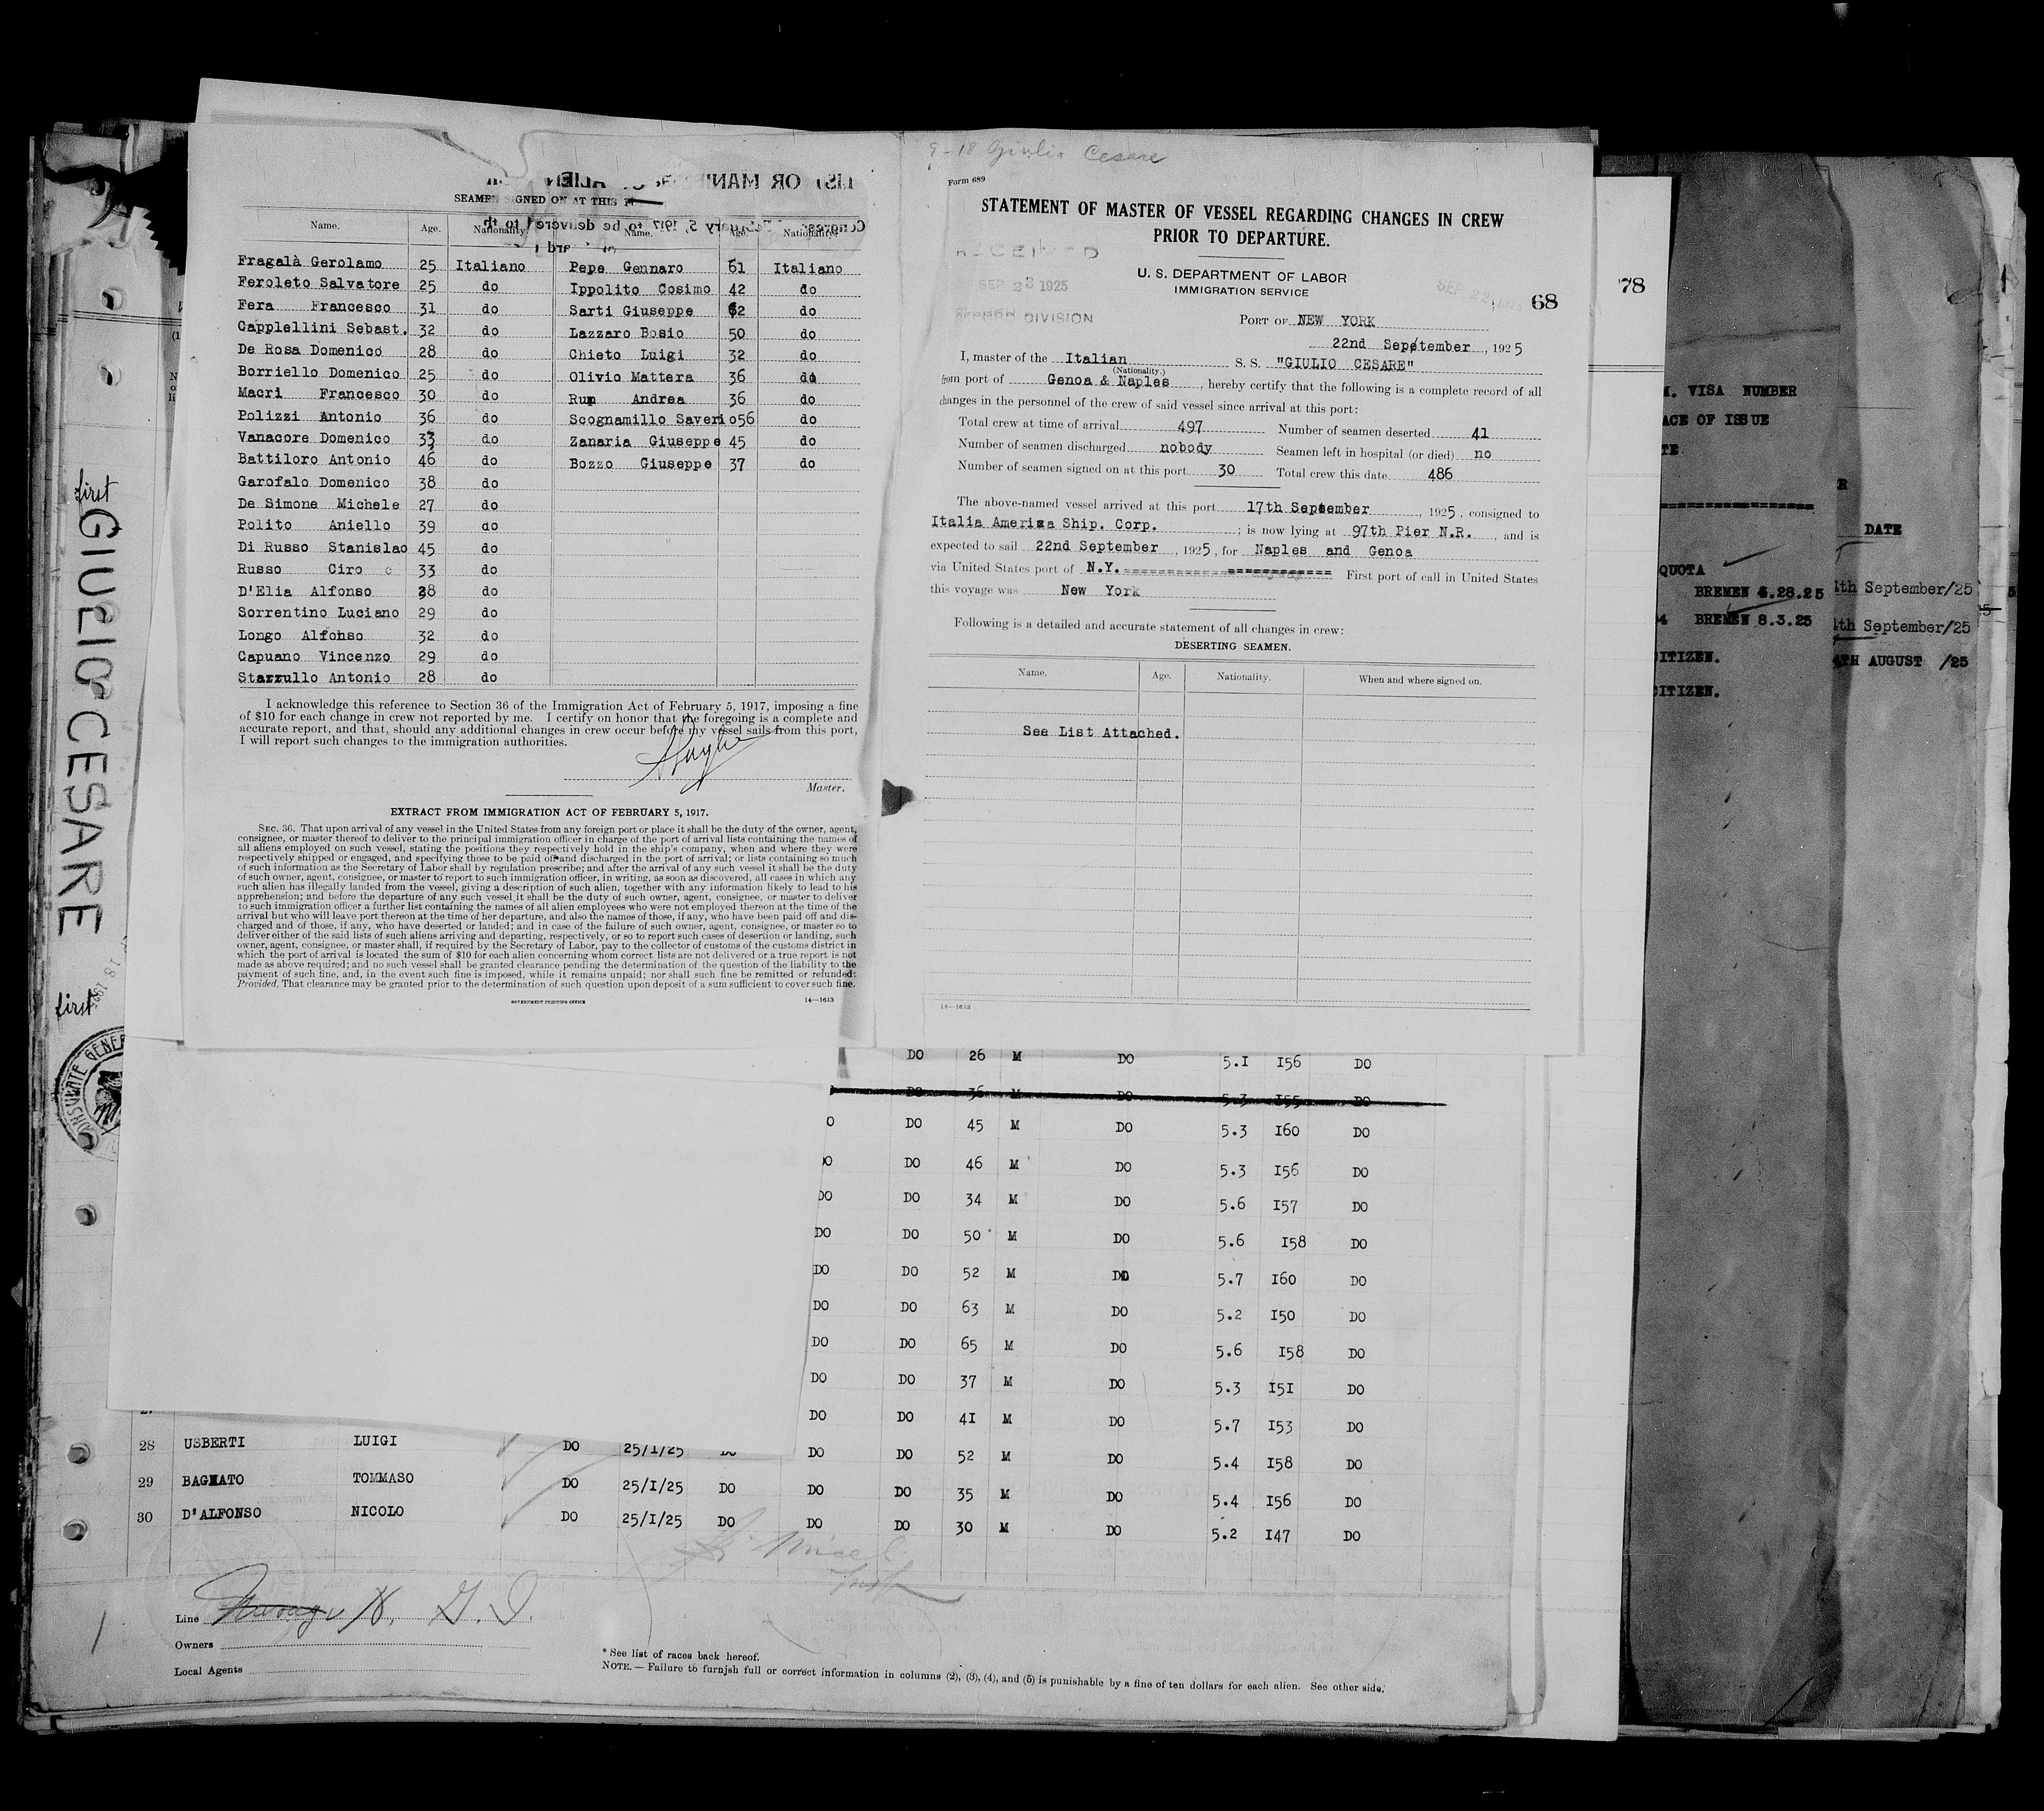 9-18 Giulio Cesare
SEAMEN SIGNED ON AT THIS
Name. Age. Nationality. Name. Age. Nationality.
Fragalà Gerolamo 25 Italiano Pepe Gennaro 61 Italiano
Feroleto Salvatore 25 do Ippolito Cosimo 42 do
Fera Francesco 31 do Sarti Giuseppe 62 do
Capplellini Sebast. 32 do Lazzaro Bosio 50 do
De Rosa Domenico 28 do Chieto Luigi 32 do
Borriello Domenico 25 do Olivio Mattera 36 do
Macri Francesco 30 do Andrea 36 do
Polizzi Antonio 36 do Scognamillo Saverio 56 do
Vanacore Domenico 33 do Zanaria Giuseppe 45 do
Battiloro Antonio 46 do Bozzo Giuseppe 37 do
Garofalo Domenico 38 do
De Simone Michele 27 do
Polito Aniello 39 do
Di Russo Stanislao 45 do
Russo Ciro 33 do
D'Elia Alfonso 38 do
Sorrentino Luciano 29 do
Longo Alfonso 32 do
Capuano Vincenzo 29 do
Starrullo Antonio 28 do
I acknowledge this reference to Section 36 of the Immigration Act of February 5, 1917, imposing a fine
of $10 for each change in crew not reported by me. I certify on honor that the foregoing is a complete and
accurate report, and that, should any additional changes in crew occur before my vessel sails from this port,
I will report such changes to the immigration authorities.
Master.
EXTRACT FROM IMMIGRATION ACT OF FEBRUARY 5, 1917.
SEC. 36. That upon arrival of any vessel in the United States from any foreign port or place it shall be the duty of the owner, agent,
consignee, or master thereof to deliver to the principal immigration officer in charge of the port of arrival lists containing the names of
all aliens employed on such vessel, stating the positions they respectively hold in the ship's company, when and where they were
respectively shipped or engaged, and specifying those to be paid off and discharged in the port of arrival; or lists containing so much
of such information as the Secretary of Labor shall by regulation prescribe; and after the arrival of any such vessel it shall be the duty
of such owner, agent, consignee, or master to report to such immigration officer, in writing, as soon as discovered, all cases in which any
such alien has illegally landed from the vessel, giving a description of such alien, together with any information likely to lead to his
apprehension; and before the departure of any such vessel it shall be the duty of such owner, agent, consignee, or master to deliver
to such immigration officer a further list containing the names of all alien employees who were not employed thereon at the time of the
arrival but who will leave port thereon at the time of her departure, and also the names of those, if any, who have been paid off and dis-
charged and of those, if any, who have deserted or landed; and in case of the failure of such owner, agent, consignee, or master so to
deliver either of the said lists of such aliens arriving and departing, respectively, or so to report such cases of desertion or landing, such
owner, agent, consignee, or master shall, if required by the Secretary of Labor, pay to the collector of customs of the customs district in
which the port of arrival is located the sum of $10 for each alien concerning whom correct lists are not delivered or a true report is not
made as above required; and no such vessel shall be granted clearance pending the determination of the question of the liability to the
payment of such fine, and, in the event such fine is imposed, while it remains unpaid; nor shall such fine be remitted or refunded:
Provided, That clearance may be granted prior to the determination of such question upon deposit of a sum sufficient to cover such fine.
GOVERNMENT PRINTING OFFICE 14—1613
Form 689
STATEMENT OF MASTER OF VESSEL REGARDING CHANGES IN CREW
PRIOR TO DEPARTURE.
RECEIVED
SEP 23 1925
DIVISION
U. S. DEPARTMENT OF LABOR
IMMIGRATION SERVICE
68
PORT OF NEW YORK
22nd September, 1925
I, master of the Italian S. S. "GIULIO CESARE"
(Nationality.)
from port of Genoa & Naples, hereby certify that the following is a complete record of all
changes in the personnel of the crew of said vessel since arrival at this port:
Total crew at time of arrival 497 Number of seamen deserted 41
Number of seamen discharged nobody Seamen left in hospital (or died) no
Number of seamen signed on at this port 30 Total crew this date 486
The above-named vessel arrived at this port 17th September, 1925, consigned to
Italia America Ship. Corp.; is now lying at 97th Pier N.R., and is
expected to sail 22nd September, 1925, for Naples and Genoa
via United States port of N.Y. First port of call in United States
this voyage was New York
Following is a detailed and accurate statement of all changes in crew:
DESERTING SEAMEN.
Name. Age. Nationality. When and where signed on.
See List Attached.
14—1613
78
M. VISA NUMBER
ACE OF ISSUE
DATE
QUOTA
BREMEN 4.28.25 1th September/25
BREMEN 8.3.25 1th September/25
CITIZEN. 4TH AUGUST /25
CITIZEN.
first GIULIO CESARE
first
18 1925
DO 26 M DO 5.1 156 DO
DO 36 M DO 5.3 155 DO
O DO 45 M DO 5.3 160 DO
DO DO 46 M DO 5.3 156 DO
DO DO 34 M DO 5.6 157 DO
DO DO 50 M DO 5.6 158 DO
DO DO 52 M DO 5.7 160 DO
DO DO 63 M DO 5.2 150 DO
DO DO 65 M DO 5.6 158 DO
DO DO 37 M DO 5.3 151 DO
DO DO 41 M DO 5.7 153 DO
28 USBERTI LUIGI DO 25/1/25 DO DO DO 52 M DO 5.4 158 DO
29 BAGNATO TOMMASO DO 25/I/25 DO DO DO 35 M DO 5.4 156 DO
30 D'ALFONSO NICOLO DO 25/I/25 DO DO DO 30 M DO 5.2 147 DO
Line
Owners
Local Agents
* See list of races back hereof.
NOTE.—Failure to furnish full or correct information in columns (2), (3), (4), and (5) is punishable by a fine of ten dollars for each alien. See other side.